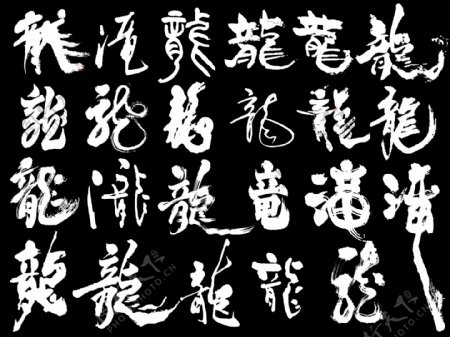 龍 滝 龍 龍 龍 龍
龍 龍 龍 龍 龍 龍
龍 瀧 龍 竜
龍 龍 龍 龍 龍